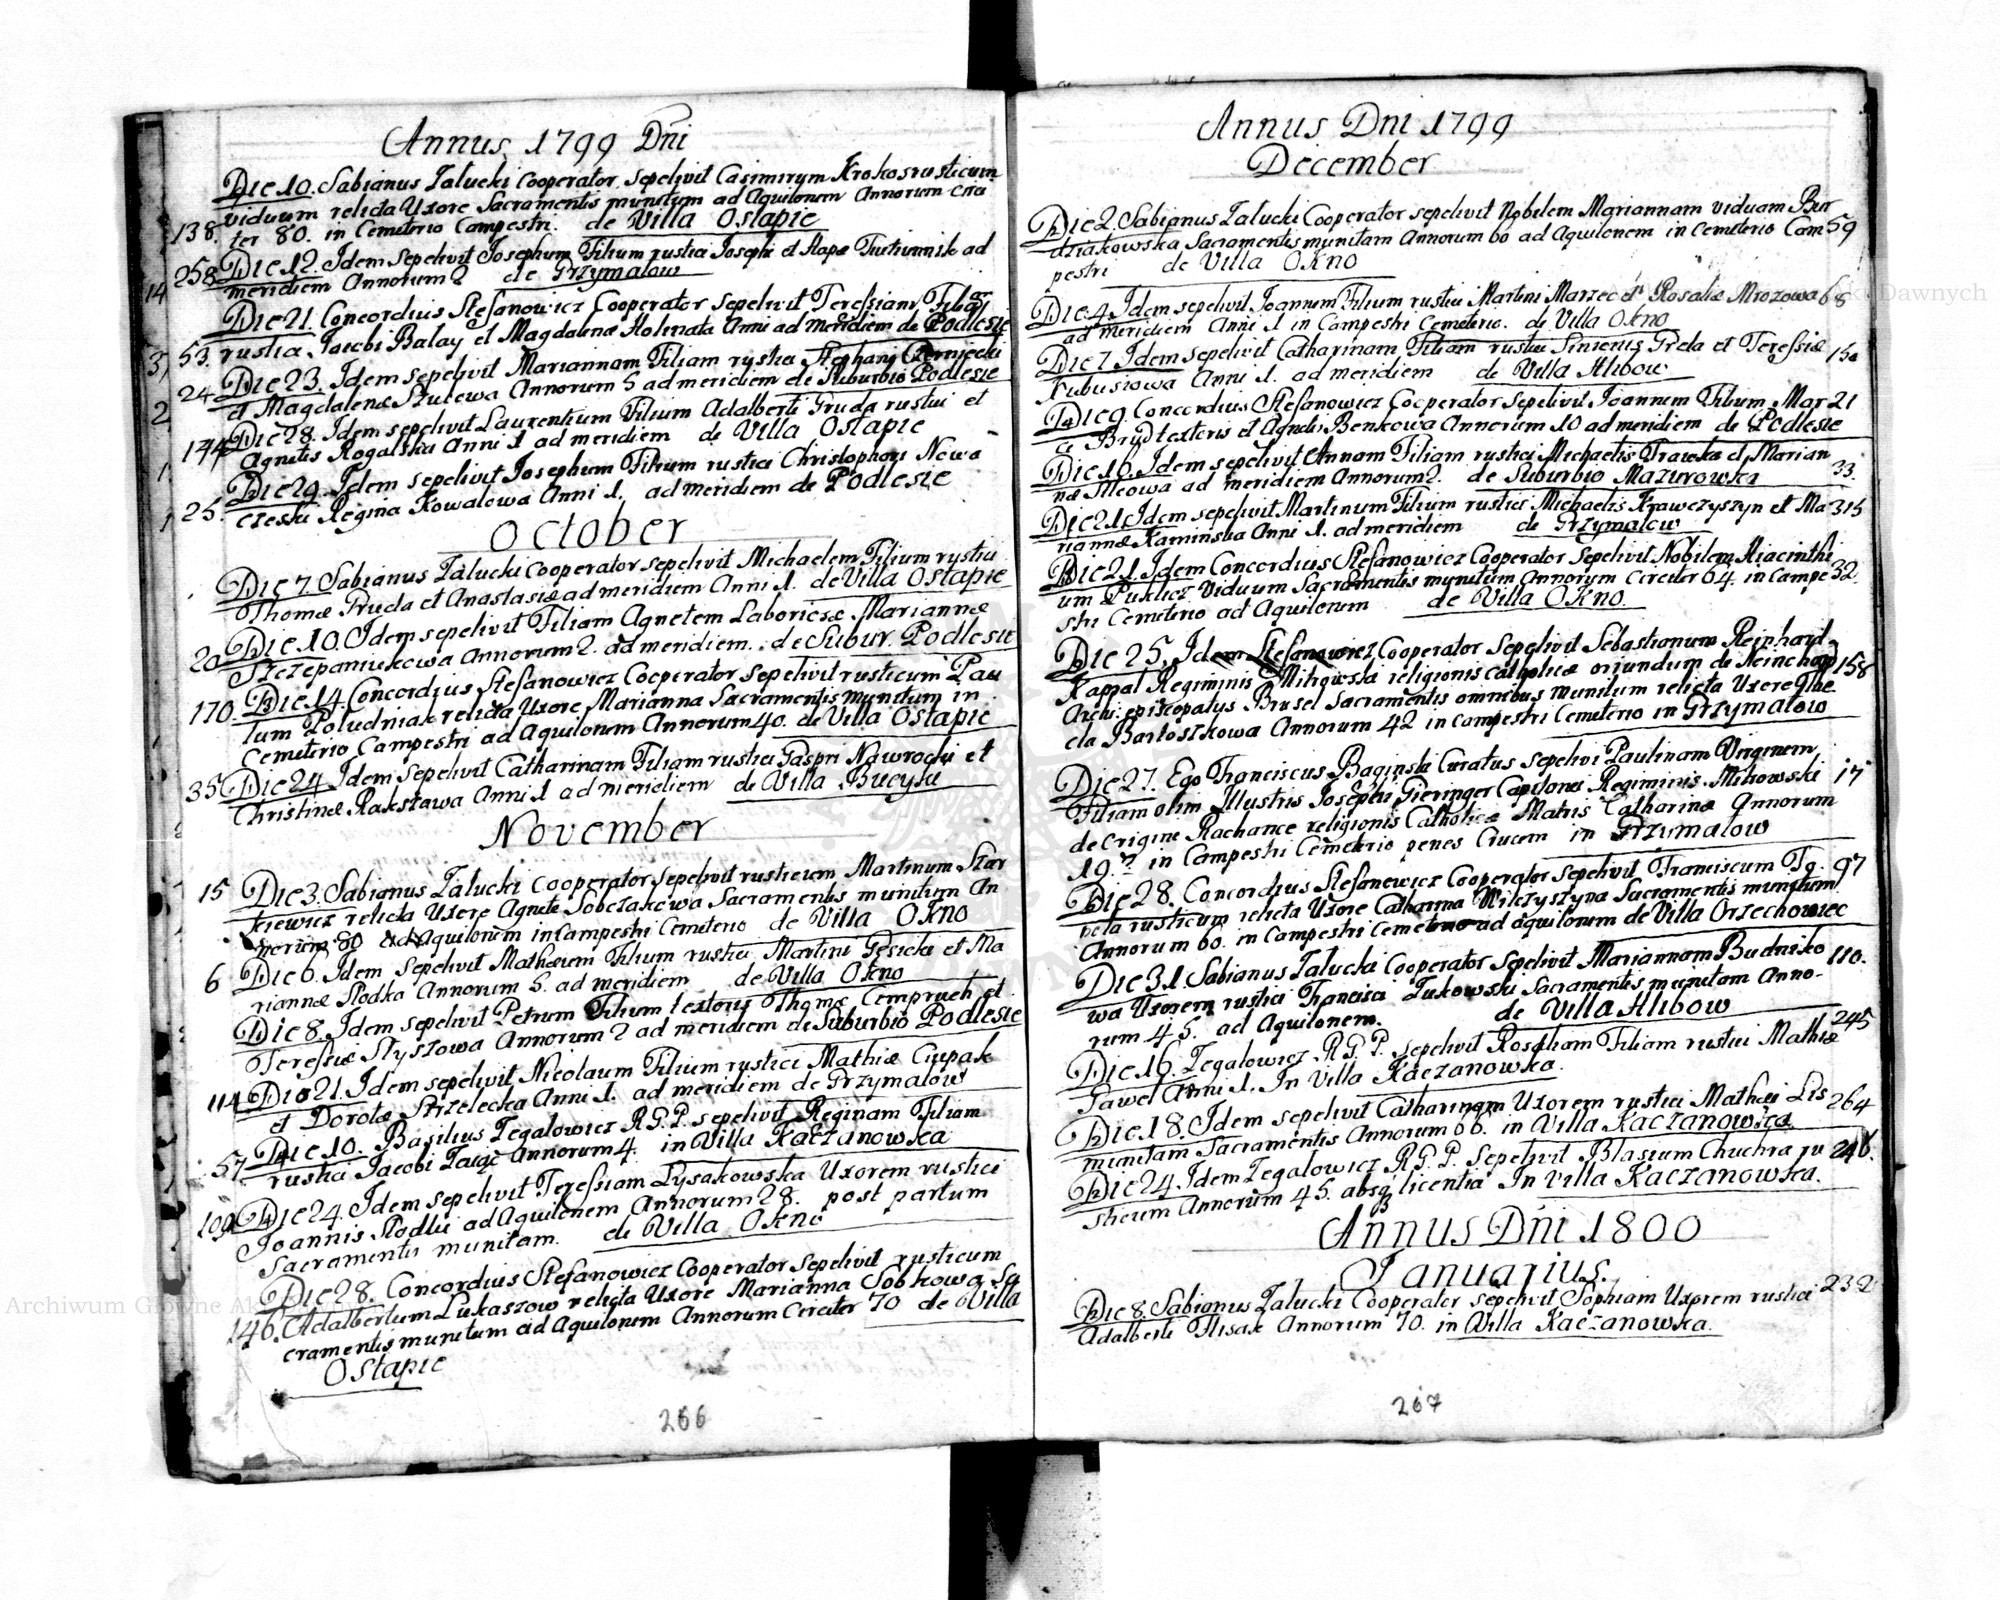 Annus 1799 Dni
Die 10. Sabianus Zalucki Cooperator sepelivit Casimirum Krokos rusticum
viduum relicta Uxore Sacramentis munitum ad Aquilonem Annorum Circi
138. ter 80. in Cemeterio Campestri. de Villa Ostapie
258 Die 12. Idem Sepelivit Josephum Filium rustici Josephi et Agapæ ad
14 meridiem Annorum 2 de Grzymalow
Die 21. Concordius Stefanowicz Cooperator Sepelivit Teressiam Filiam
3 53. rustici Jacobi Balay et Magdalenæ Anni ad meridiem de Podlesie
24 Die 23. Idem sepelivit Mariannam Filiam rustici Stephani Czerniecki
2 et Magdalenæ Szulcewa Annorum 5 ad meridiem de Suburbio Podlesie
144 Die 28. Idem sepelivit Laurentium Filium Adalberti Gruda rustici et
1. Agnetis Rogalska Anni 1 ad meridiem de Villa Ostapie
Die 29. Idem sepelivit Josephum Filium rustici Christophori Nowa
1 25. czeski Regina Kowalowa Anni 1. ad meridiem de Podlesie
October
Die 7. Sabianus Zalucki Cooperator sepelivit Michaelem Filium rustici
Thomæ Pruda et Anastasiæ ad meridiem Anni 1. de Villa Ostapie
20 Die 10. Idem sepelivit Filiam Agnetem Laboricsæ Mariannæ
Szczepaniukowa Annorum 2. ad meridiem. de Subur. Podlesie
170. Die 14. Concordius Stefanowicz Cooperator sepelivit rusticum Pau
lum Poludniak relicta Uxore Marianna Sacramentis munitum in
Cemeterio Campestri ad Aquilonem Annorum 40. de Villa Ostapie
35 Die 24. Idem Sepelivit Catharinam Filiam rustici Gaspri Nawrocki et
Christinæ Raksawa Anni 1 ad meridiem de Villa Bucyki
November
15 Die 3. Sabianus Zalucki Cooperator sepelivit rusticum Martinum Star
kiewicz relicta Uxore Agnete Sobczakowa Sacramentis munitum An
norum 80 ad Aquilonem in Campestri Cemeterio de Villa Okno
6 Die 6. Idem Sepelivit Mathæum Filium rustici Martini Gęsicki et Ma
riannæ Slodka Annorum 5. ad meridiem de Villa Okno
Die 8. Idem sepelivit Petrum Filium textoris Thomæ Compruch et
Teressiæ Slyszowa Annorum 2 ad meridiem de Suburbio Podlesie
114 Die 21. Idem sepelivit Nicolaum Filium rustici Mathiæ Ciupak
et Dorotæ Strzelecka Anni 1. ad meridiem de Grzymalow
57 Die 10. Basilius Tegalowicz R.G.P. sepelivit Reginam Filiam
rustici Jacobi Annorum 4. in Villa Kaczanowka
109 Die 24. Idem sepelivit Teressiam Lysakowska Uxorem rustici
Joannis Slodki ad Aquilonem Annorum 28. post partum
Sacramentis munitam. de Villa Okno
Die 28. Concordius Stefanowicz Cooperator Sepelivit rusticum
146. Adalbertum Lukaszow relicta Uxore Marianna Sobkowa Sa
cramentis munitum ad Aquilonem Annorum Circiter 70 de Villa
Ostapie
266
Annus Dni 1799
December
Die 2. Sabianus Zalucki Cooperator sepelivit Nobilem Mariannam viduam Bur
dziakowska Sacramentis munitam Annorum 60 ad Aquilonem in Cemeterio Cam 59
pestri de Villa Okno
Die 4. Idem sepelivit Joannem Filium rustici Martini Marzec et Rosaliæ Mrozowa 68
ad meridiem Anni 1 in Campestri Cemeterio. de Villa Okno
Die 7. Idem sepelivit Catharinam Filiam rustici Simenis Greła et Teressiæ 150
Kubusiowa Anni 1. ad meridiem de Villa Hlibow
Die 9. Concordius Stefanowicz Cooperator Sepelivit Joannem Filium Mar 21
ci Bryd textoris et Agnetis Benkowa Annorum 10 ad meridiem de Podlesie
Die 16. Idem sepelivit Annam Filiam rustici Michaelis Trawka et Marian
næ Alcowa ad meridiem Annorum 2. de Suburbio Mazurowka 33.
Die 21. Idem sepelivit Martinum Filium rustici Michaelis Krawczyszyn et Ma 315
riannæ Kaminska Anni 1. ad meridiem de Grzymalow
Die 21. Idem Concordius Stefanowicz Cooperator Sepelivit Nobilem Hiacinthi
um Puklicz Viduum Sacramentis munitum Annorum Circiter 64. in Campe 32.
stri Cemeterio ad Aquilonem de Villa Okno.
Die 25. Idem Stefanowicz Cooperator Sepelivit Sebastianum Reinhard
Kapral Regiminis Mitrowski religionis Catholicæ oriundum de 158
Archi episcopatus Brusel Sacramentis omnibus munitum relicta Uxore Hae
cla Bartoszkowa Annorum 42 in campestri Cemeterio in Grzymalow
Die 27. Ego Franciscus Baginski Curatus sepelivi Paulinam Virginem
Filiam olim Illustris Josephi Gieringer Capitanei Regiminis Mitrowski 17
de origine Rachance religionis Catholicæ Matris Catharinæ Annorum
19. in Campestri Cemeterio penes Crucem in Grzymalow
Die 28. Concordius Stefanowicz Cooperator sepelivit Franciscum Tg. 97
bela rusticum relicta Uxore Catharina Wilczyszyna Sacramentis munitum
Annorum 60. in Campestri Cemeterio ad aquilonem de Villa Orzechowiec
Die 31. Sabianus Zalucki Cooperator sepelivit Mariannam Budniko 110.
wa Uxorem rustici Francisci Zukowski Sacramentis munitam Anno-
rum 45. ad Aquilonem. de Villa Hlibow
Die 16. Tegalowicz R.G.P. sepelivit Rosaliam Filiam rustici Mathiæ 245
Gawel Anni 1. In Villa Kaczanowka.
Die 18. Idem sepelivit Catharinam Uxorem rustici Mathæi Lis 264
munitam Sacramentis Annorum 66. in Villa Kaczanowka
Die 24. Idem Tegalowicz R.G.P. Sepelivit Blasium Chuchra ru 246.
sticum Annorum 45. absq; licentia In Villa Kaczanowka.
Annus Dni 1800
Januarius.
Die 8. Sabianus Zalucki Cooperator sepelivit Sophiam Uxorem rustici 232
Adalberti Flisak Annorum 70. in Villa Kaczanowka.
267
Archiwum Główne Akt Dawnych